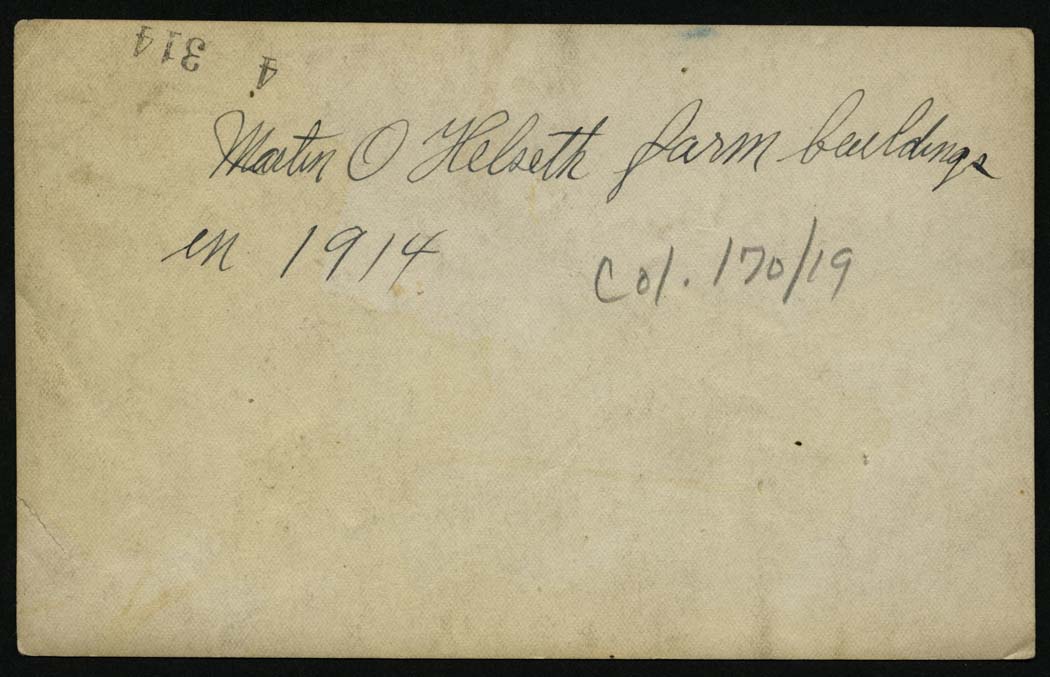 314 4
Martin O Helseth farm buildings
in 1914
Col. 170/19